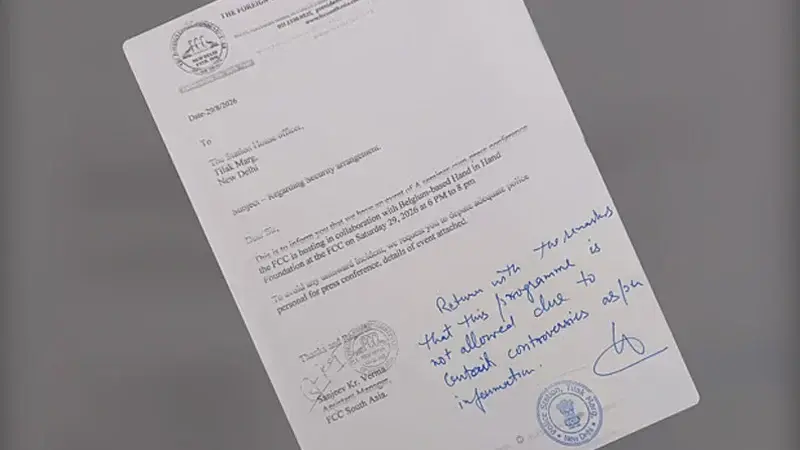 THE FOREIGN
FCC
NEW DELHI
Date-29/8/2026
To
The Station House officer,
Tilak Marg,
New Delhi
Subject – Regarding Security arrangement.
Dear Sir,
This is to inform you that we have an event of A seminar cum press conference
the FCC is hosting in collaboration with Belgium-based Hand in Hand
Foundation at the FCC on Saturday 29, 2026 at 6 PM to 8 pm
To avoid any untoward incident, we request you to depute adequate police
personal for press conference, details of event attached.
Thanks and Regards
Sanjeev Kr. Verma
Assistant Manager
FCC South Asia.
Return with the remarks
that this programme is
not allowed due to
certain controversies as per
information.
Police Station, Tilak Marg,
New Delhi